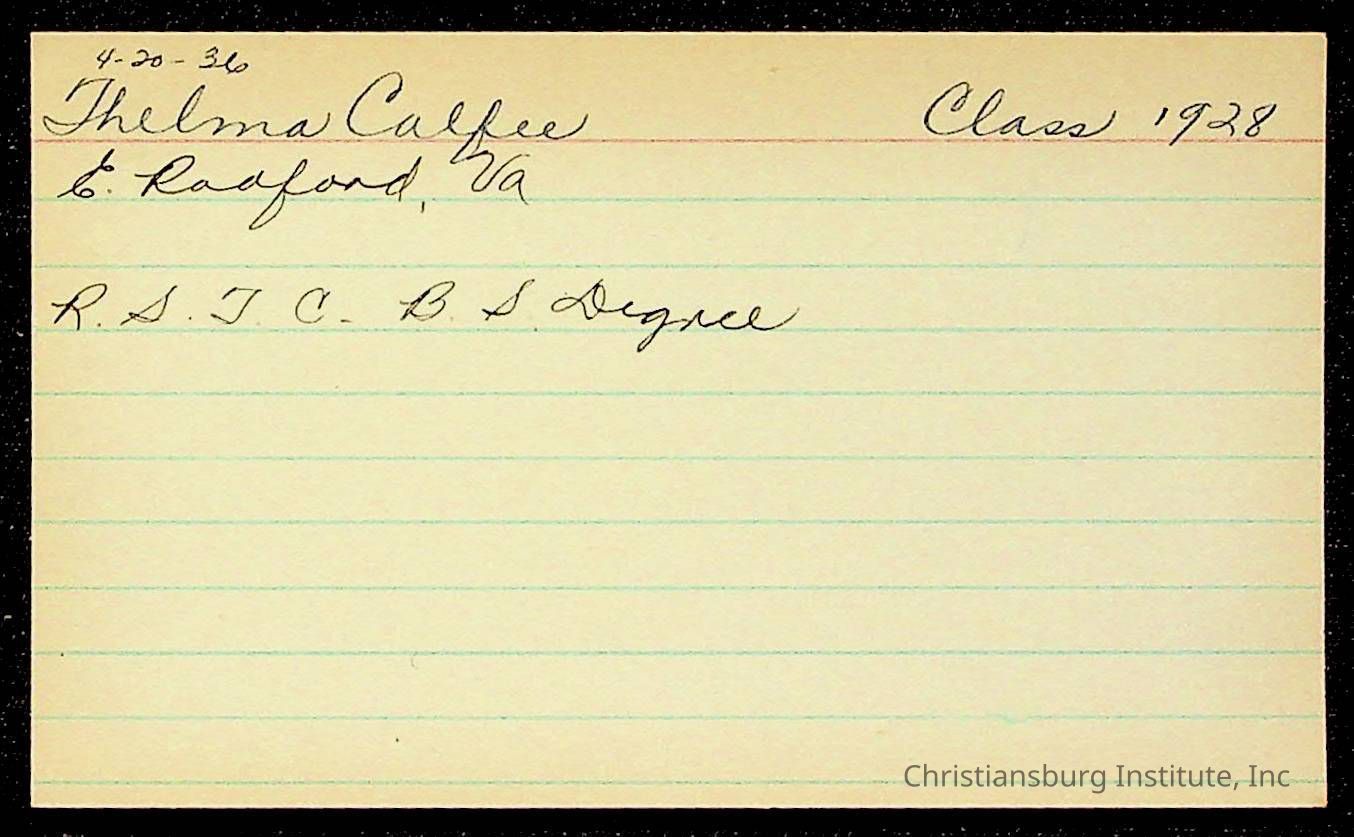 4-20-36
Thelma Calfee Class 1928
E. Radford, Va
R. S. T. C. B. S. Degree
Christiansburg Institute, Inc